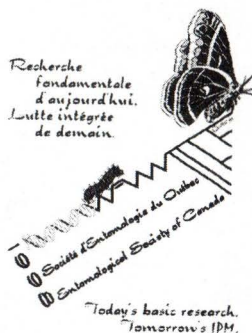 Recherche
fondamentale
d'aujourd'hui.
Lutte intégrée
de demain.
Société d'Entomologie du Québec
Entomological Society of Canada
Today's basic research.
Tomorrow's IPM.